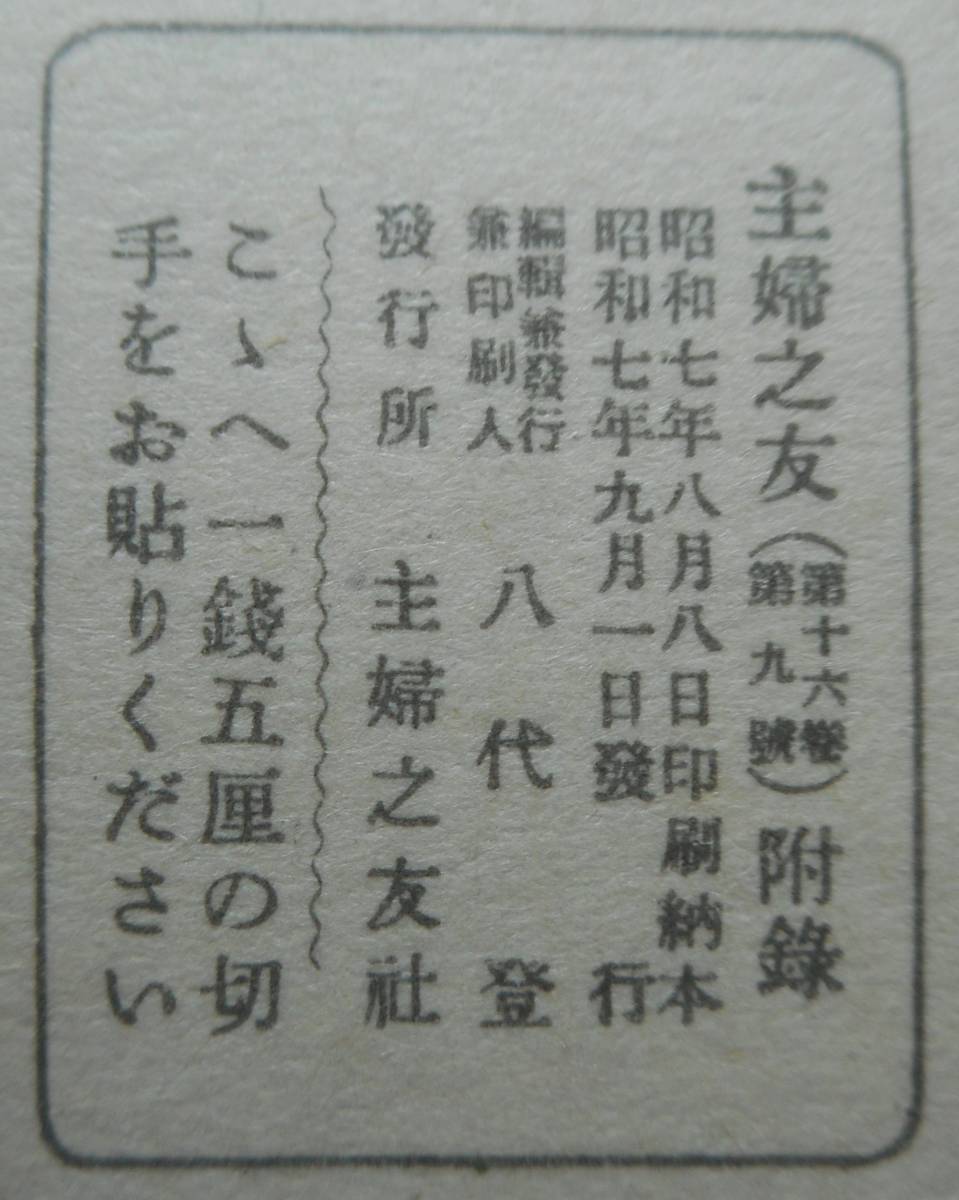 主婦之友(第十六卷第九號)附錄
昭和七年八月八日印刷納本
昭和七年九月一日發行
編輯兼發行
兼印刷人 八代登
發行所 主婦之友社
こゝへ一錢五厘の切
手をお貼りください